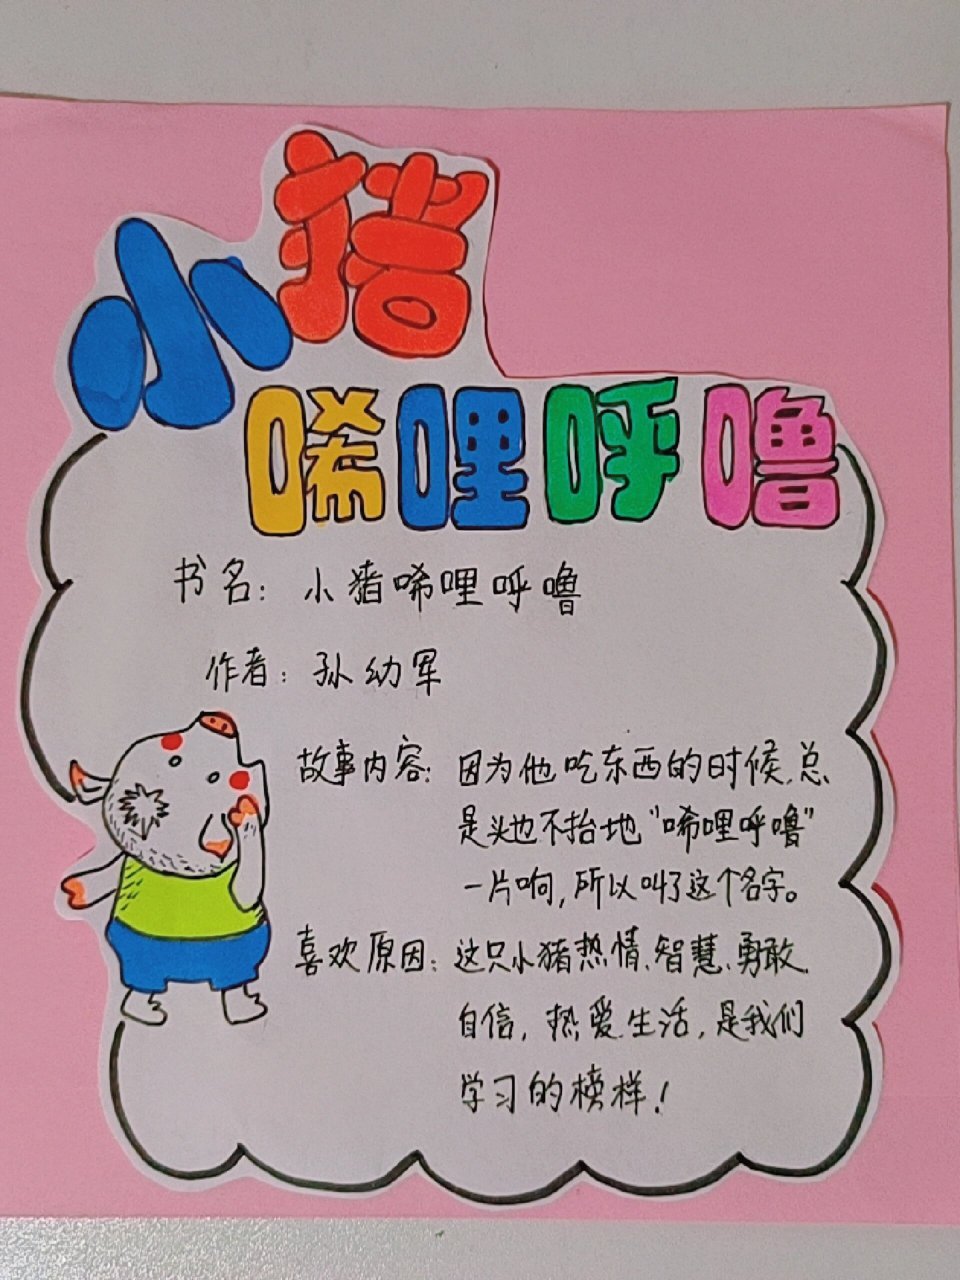 小猪
唏哩呼噜
书名：小猪唏哩呼噜
作者：孙幼军
故事内容：因为他吃东西的时候，总
是头也不抬地“唏哩呼噜”
一片响，所以叫了这个名字。
喜欢原因：这只小猪热情、智慧、勇敢、
自信，热爱生活，是我们
学习的榜样！